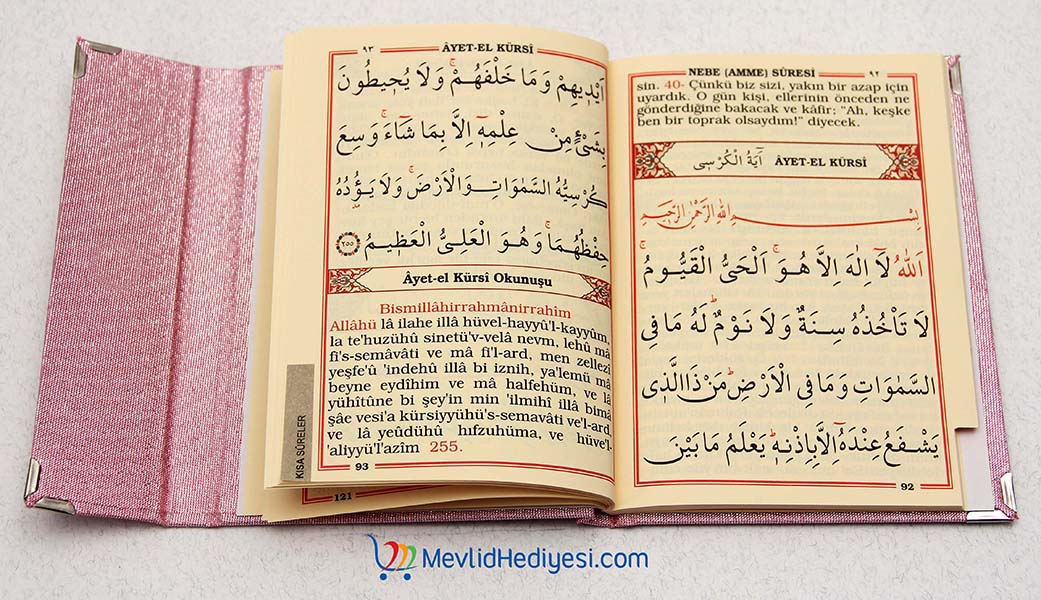 NEBE (AMME) SÛRESİ ٩٢
sin. 40- Çünkü biz sizi, yakın bir azap için
uyardık. O gün kişi, ellerinin önceden ne
gönderdiğine bakacak ve kâfir; "Ah, keşke
ben bir toprak olsaydım!" diyecek.
آيَةُ الْكُرْسِى ÂYET-EL KÜRSÎ
بِسْمِ اللهِ الرَّحْمٰنِ الرَّحِيمِ
اَللّٰهُ لَٓا اِلٰهَ اِلَّا هُوَۚ اَلْحَىُّ الْقَيُّومُۚ
لَا تَاْخُذُهُ سِنَةٌ وَلَا نَوْمٌۜ لَهُ مَا فِى
السَّمٰوَاتِ وَمَا فِى الْاَرْضِۜ مَنْ ذَا الَّذِى
يَشْفَعُ عِنْدَهُٓ اِلَّا بِاِذْنِهِۜ يَعْلَمُ مَا بَيْنَ
92
٩٣ ÂYET-EL KÜRSÎ
اَيْدِيهِمْ وَمَا خَلْفَهُمْۚ وَلَا يُحِيطُونَ
بِشَىْءٍ مِنْ عِلْمِهِٓ اِلَّا بِمَا شَٓاءَۚ وَسِعَ
كُرْسِيُّهُ السَّمٰوَاتِ وَالْاَرْضَۚ وَلَا يَؤُ۫دُهُ
حِفْظُهُمَاۚ وَهُوَ الْعَلِىُّ الْعَظِيمُ ٢٥٥
Âyet-el Kürsî Okunuşu
Bismillâhirrahmânirrahîm
Allâhü lâ ilahe illâ hüvel-hayyü'l-kayyûm,
la te'huzühû sinetü'v-velâ nevm, lehû mâ
fi's-semâvâti ve mâ fi'l-ard, men zellezî
yeşfe'û 'indehû illâ bi iznih, ya'lemü mâ
beyne eydîhim ve mâ halfehüm, ve lâ
yühîtûne bi şey'in min 'ilmihî illâ bimâ
şâe vesi'a kürsiyyühü's-semavâti ve'l-ard,
ve lâ yeûdühû hıfzuhüma, ve hüve'l-
'aliyyü'l'azîm 255.
93
KISA SÛRELER
121
MevlidHediyesi.com